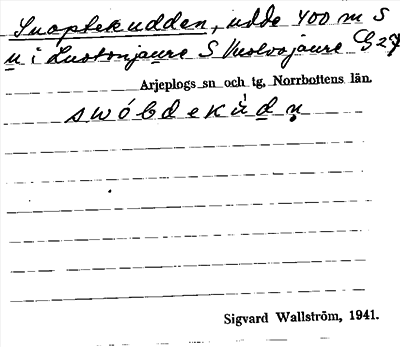 Suoptekudden, udde 400 m S
u i Luotonjaure S Vuolvojaure G27
Arjeplogs sn och tg, Norrbottens län.
swóbdekùdṇ
Sigvard Wallström, 1941.